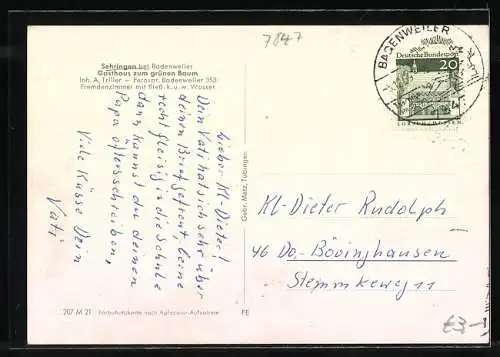 7847
Sehringen bei Badenweiler
Gasthaus zum grünen Baum
Inh. A. Triller — Fernspr. Badenweiler 353
Fremdenzimmer mit fließ. k. u. w. Wasser
Lieber Kl-Dieter!
Dein Vati hat sich sehr über
deinen Brief gefreut, lerne
recht fleissig in die Schule
dann kannst du deinen
Papa öfters schreiben,
Viele Küsse Dein
Vati
207 M 21
Farbautokarte nach Agfacolor-Aufnahme
FE
Gebr. Metz, Tübingen
BADENWEILER
Deutsche Bundespost
20
LORSCH/HESSEN
Kl-Dieter Rudolph
46 Do.-Bövinghausen
Stemmkeweg 11
£3-